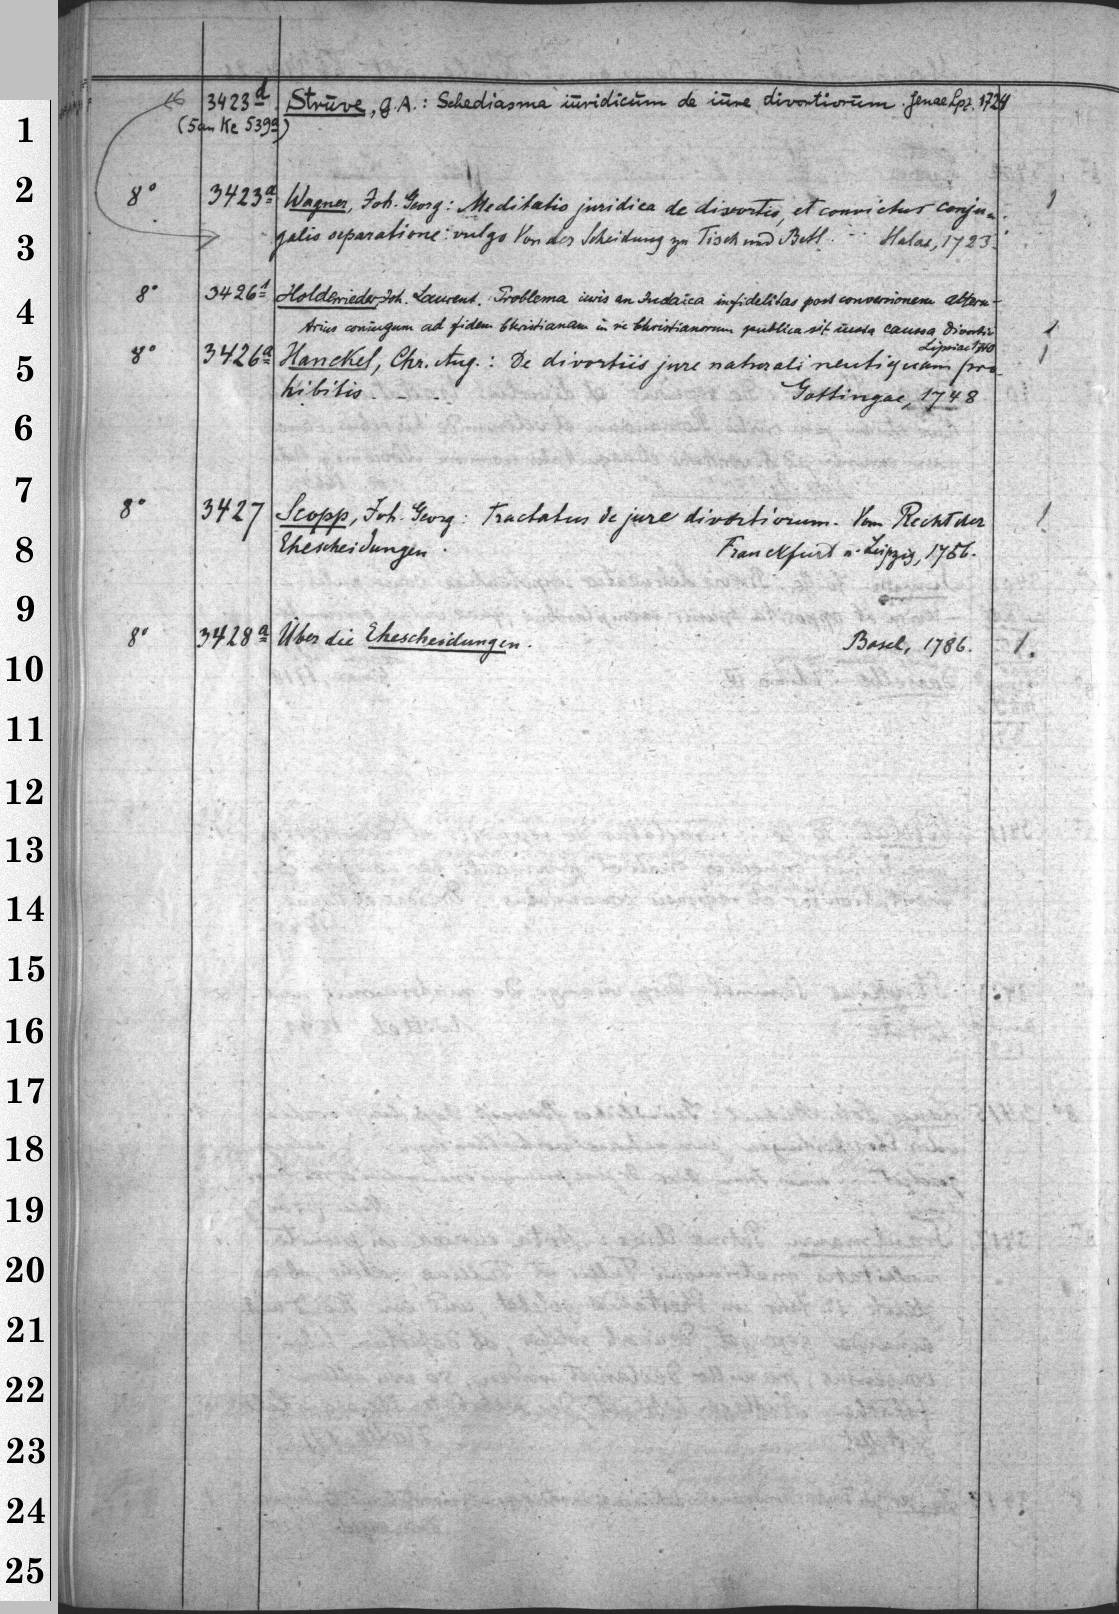 3423d Strūve, G. A.: Schediasma iūridicūm de iūre divortiorūm. Jenae Lpz. 1724
(5 an Ke 539a)
1
2
8° 3423a Wagner, Joh. Georg: Meditatio juridica de divortio, et convictus conju- 1
3
galis separatione: vulgo Von der Scheidung zu Tisch und Bett. Halae, 1723.
8° 3426 Holderrieder Joh. Laurent. Problema iuris an Judaica infidelitas post conversionem alteru-
4
trius coniugum ad fidem Christianam in re Christianorum publica sit iusta caussa divortii 1
Lipsiae 1740
8° 3426a Hanckel, Chr. Aug.: De divortiis jure naturali neutiquam pro- 1
5
hibitis. Gottingae, 1748
6
7
8° 3427 Scopp, Joh. Georg: Tractatus de jure divortiorum. Vom Recht der 1
8
Ehescheidungen. Franckfurt u. Leipzig, 1756.
9
8° 3428a Über die Ehescheidungen. Basel, 1786. 1.
10
11
12
13
14
15
16
17
18
19
20
21
22
23
24
25